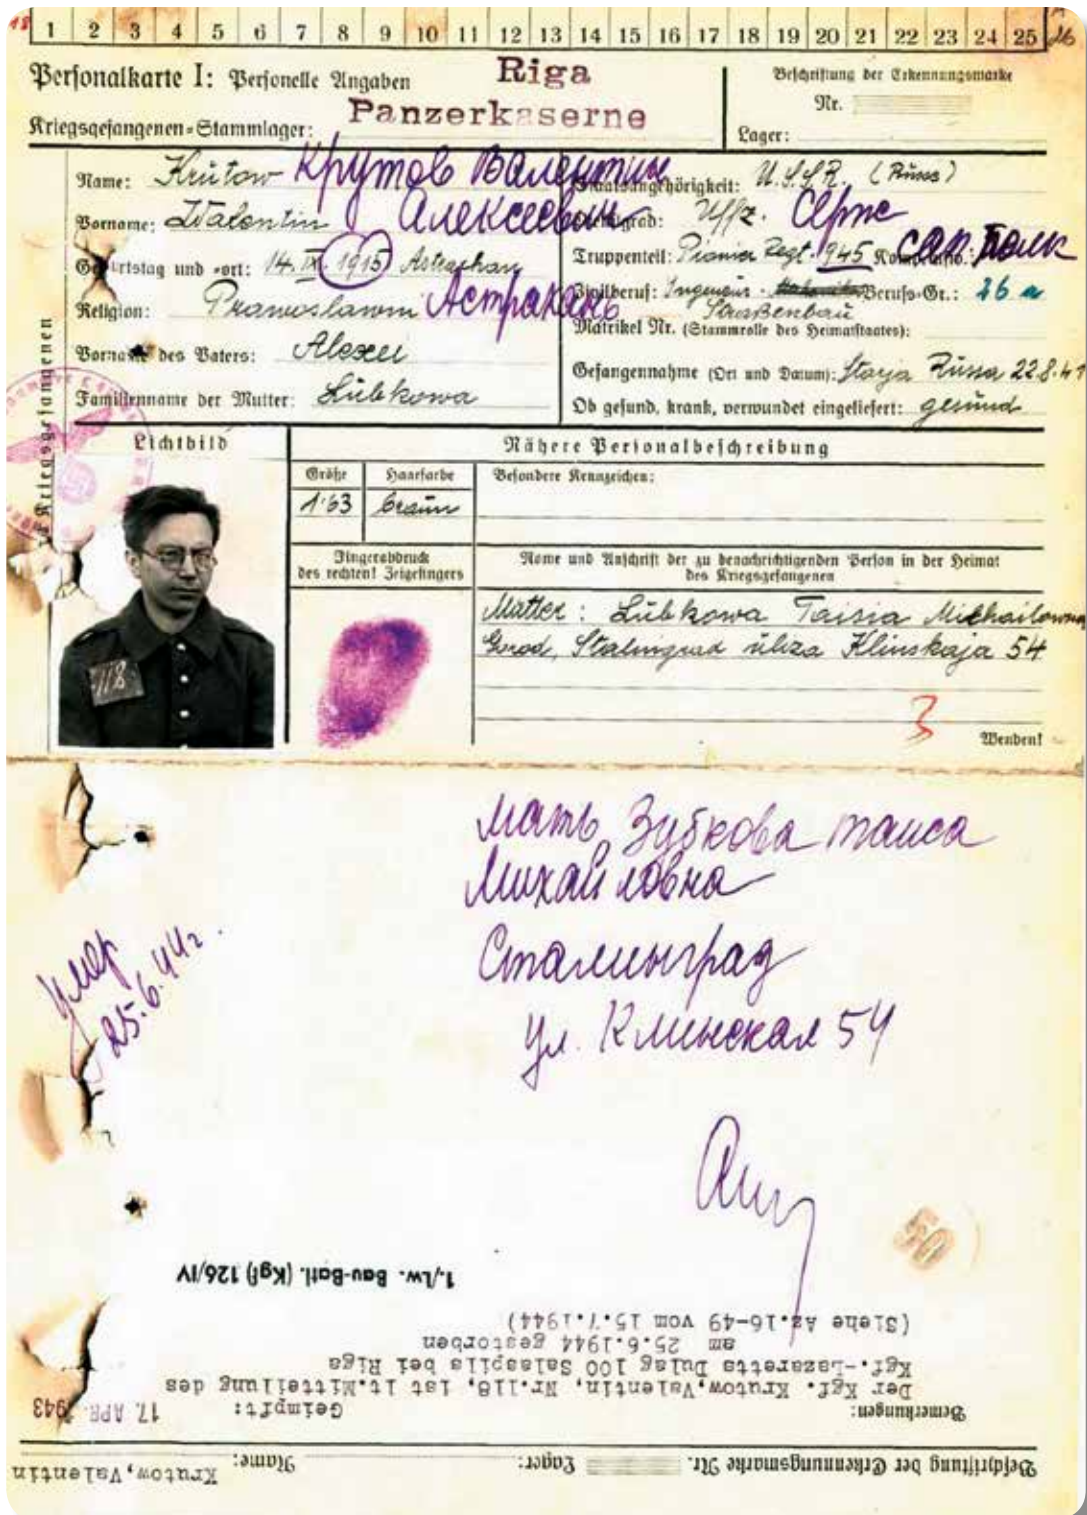 18 1 2 3 4 5 6 7 8 9 10 11 12 13 14 15 16 17 18 19 20 21 22 23 24 25 26
Personalkarte I: Personelle Angaben
Riga
Panzerkaserne
Kriegsgefangenen=Stammlager:
Beschriftung der Erkennungsmarke
Nr.
Lager:
Name: Krutow Крутов Валентин
Vorname: Walentin Алексеевич
Geburtstag und =ort: 14. IX. 1915 Astrachan
Религion: Prawoslawn Астрахань
Vorname des Vaters: Alexei
Familienname der Mutter: Subkowa
Staatsangehörigkeit: U.S.S.R. (Russe)
Dienstgrad: Uffz. Серж
Truppenteil: Pionier Regt. 945 сап. полк
Zivilberuf: Ingenieur - Berufs=Gr.: 26 a
Straßenbau
Matrikel Nr. (Stammrolle des Heimatstaates):
Gefangennahme (Ort und Datum): Staraja Russa 22.8.41
Ob gesund, krank, verwundet eingeliefert: gesund
des Kriegsgefangenen
Lichtbild
118
Nähere Personalbeschreibung
Größe Haarfarbe Besondere Kennzeichen:
1'63 braun
Fingerabdruck
des rechten! Zeigefingers
Name und Anschrift der zu benachrichtigenden Person in der Heimat
des Kriegsgefangenen
Mutter: Subkowa Taisia Michailowna
Gorod, Stalingrad uliza Klinskaja 54
3
Wenden!
мать Зубкова таиса
Михайловна
Сталинград
ул. Клинская 54
умер
25.6.44г.
1./Lw. Bau-Batl. (Kgf) 126/IV
Beschriftung der Erkennungsmarke Nr. Lager: Name: Krutow,Valentin
Bemerkungen: Geimpft: 17. APR. 1943
Der Kgf. Krutow,Valentin, Nr.118, ist lt.Mitteilung des
Kgf.-Lazaretts Dulag 100 Salaspils bei Riga
am 25.6.1944 gestorben
(Siehe Az.16-49 vom 15.7.1944)